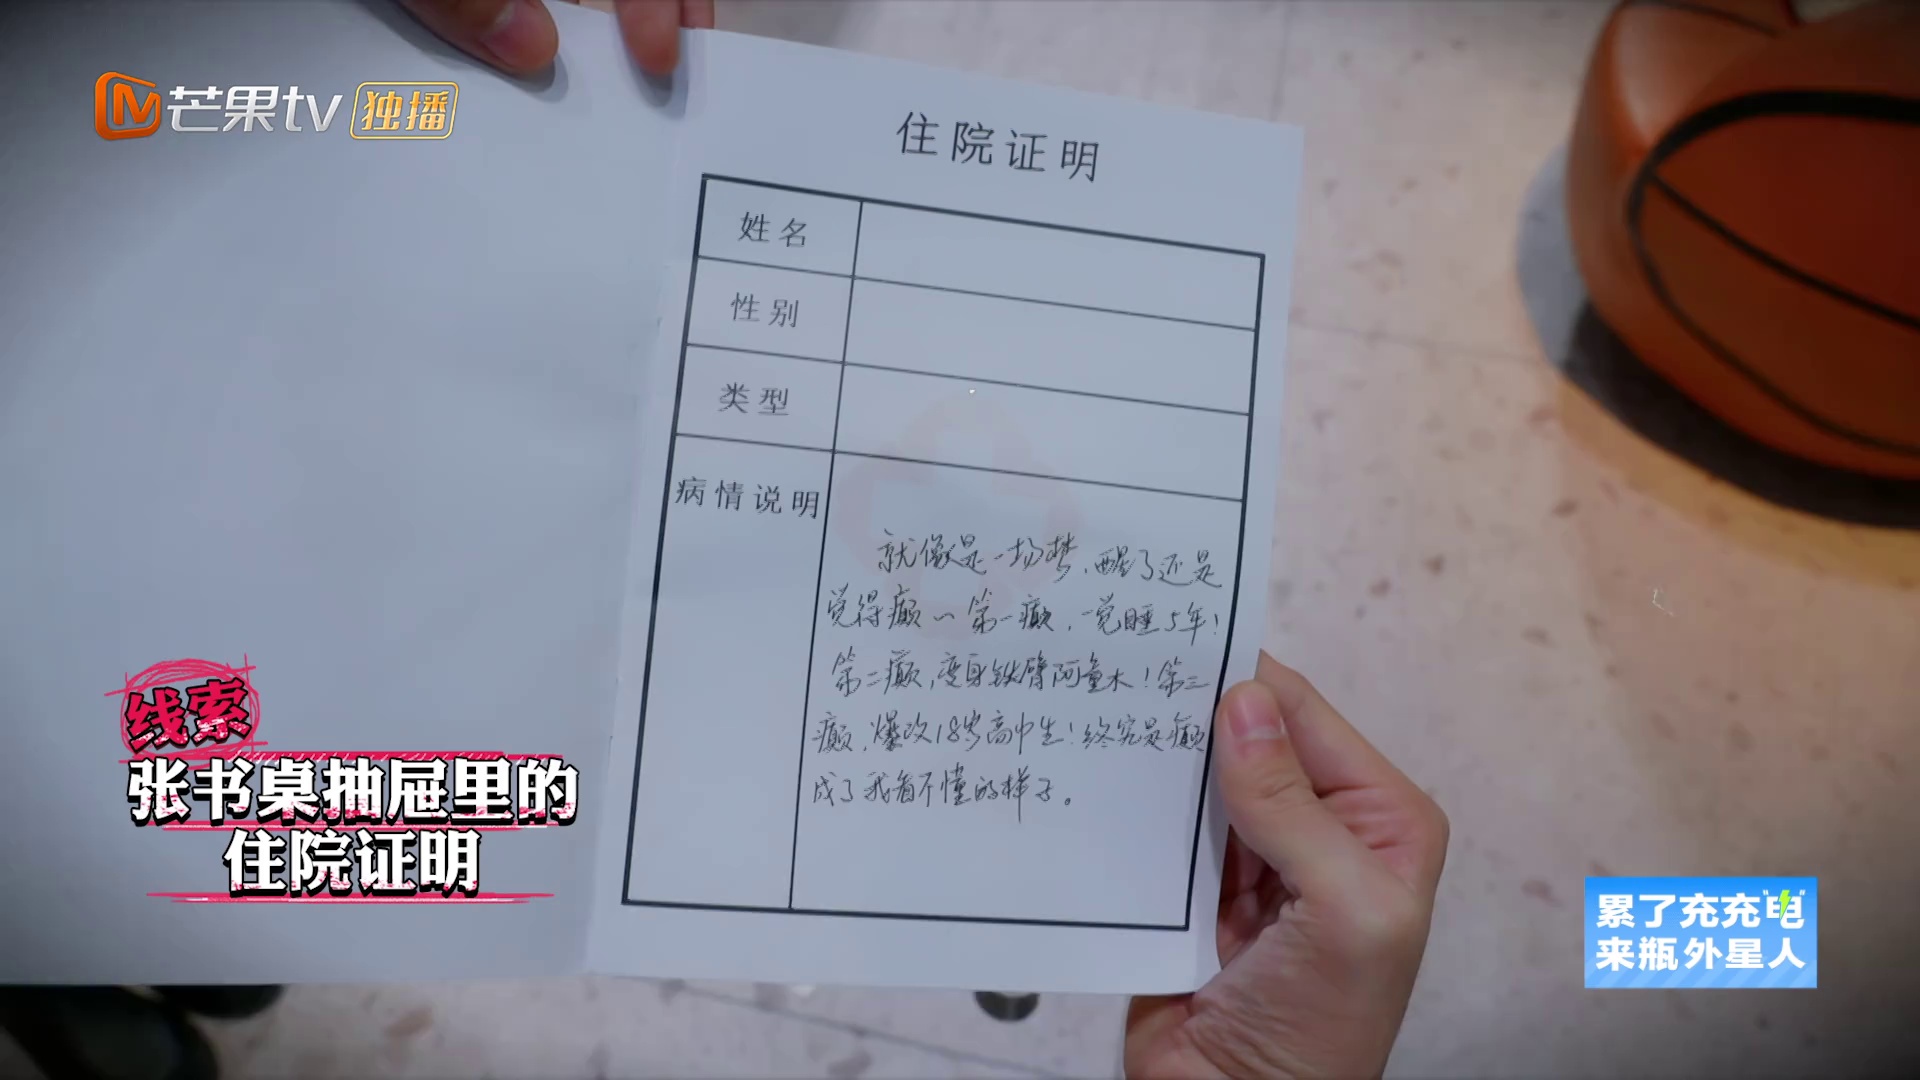 芒果tv 独播
住院证明
姓名
性别
类型
病情说明
就像是一场梦,醒了还是
觉得癫~第一癫,一觉睡5年!
第二癫,变身铁臂阿童木!第三
癫,爆改18岁高中生!终究是癫
成了我看不懂的样子。
线索
张书桌抽屉里的
住院证明
累了充充"电"
来瓶外星人